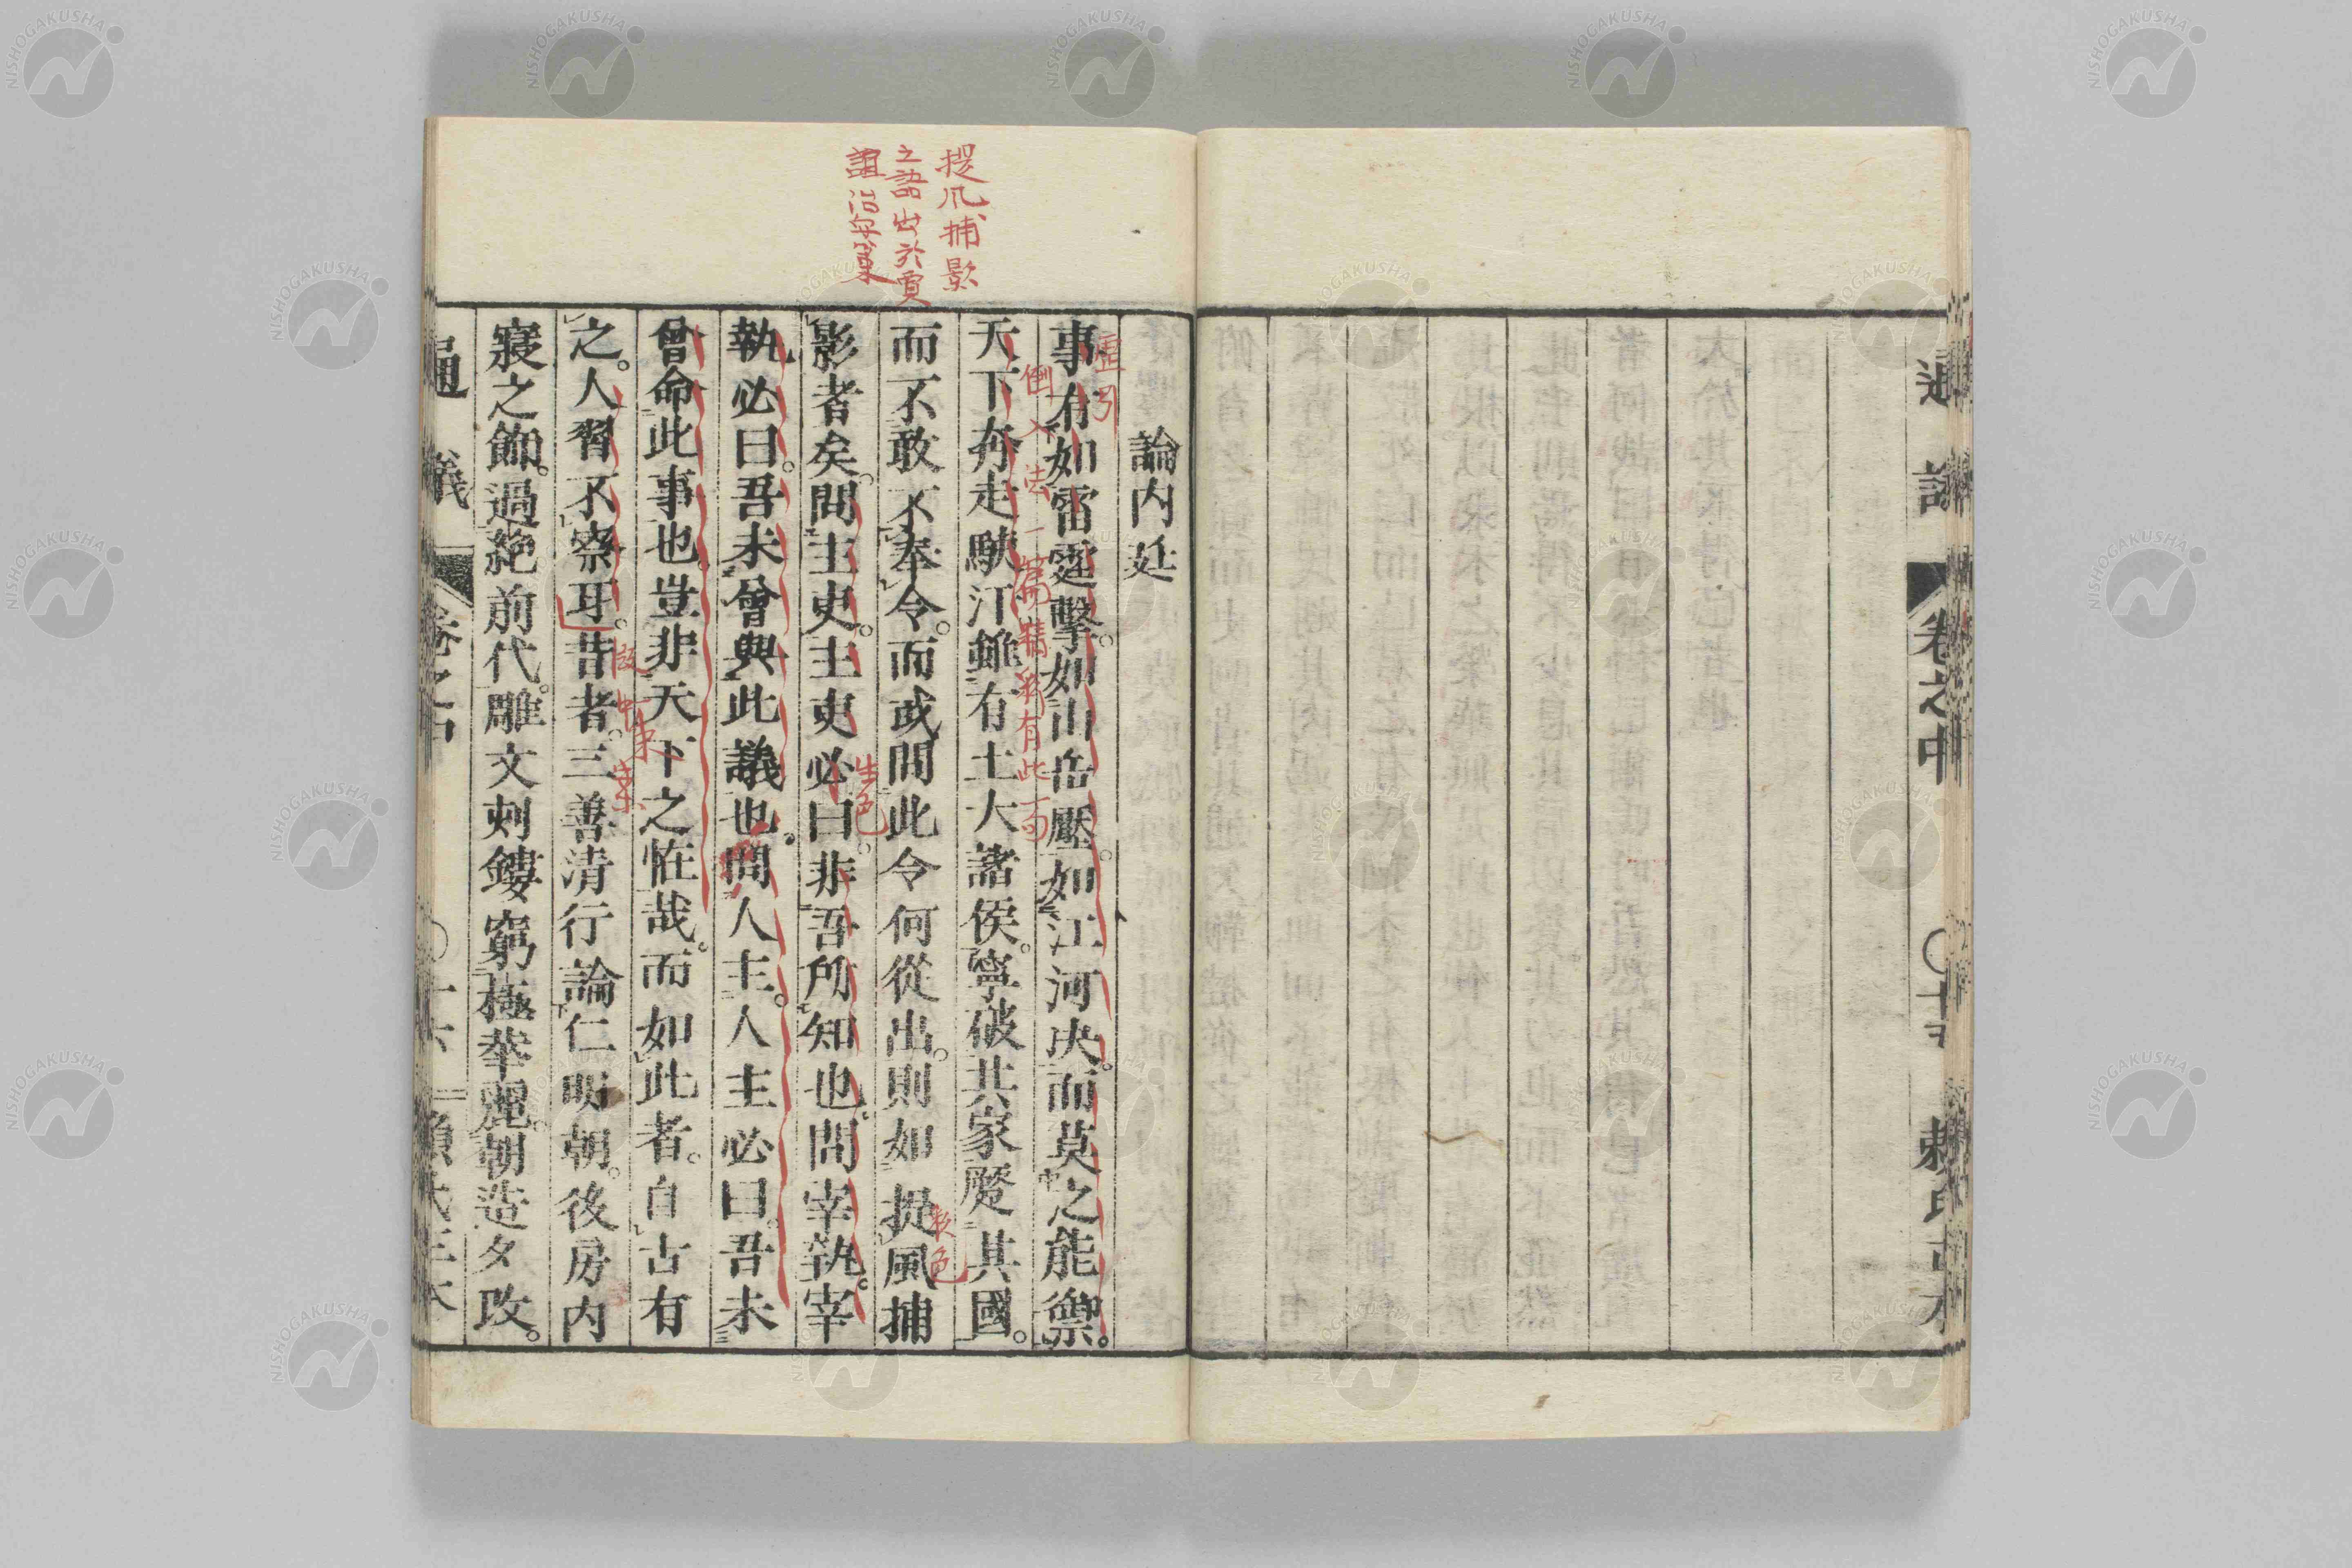 通議
卷之中
○十五
頼氏正本
提風捕影
之語出於賈
誼治安策
論內廷
虛引
事有如雷霆擊。如山岳壓。如江河决。而莫之能禦。
倒入法一篇精彩有此一句
天下奔走駛汗。雖有土大諸侯。寧破其家蹙其國。
而不敢不奉令。而或問此令何從出。則如提風捕
影者矣。問主吏。主吏必曰。非吾所知也。問宰執。宰
生色
執必曰。吾未曾與此議也。問人主。人主必曰。吾未
曾命此事也。豈非天下之恠哉。而如此者。自古有
之。人習不察耳。昔者。三善清行論仁明朝。後房內
寢之飾。過絶前代。雕文刺鏤。窮極華麗。朝造夕改。
通議
卷之中
○十六
頼氏正本
NISHOGAKUSHA